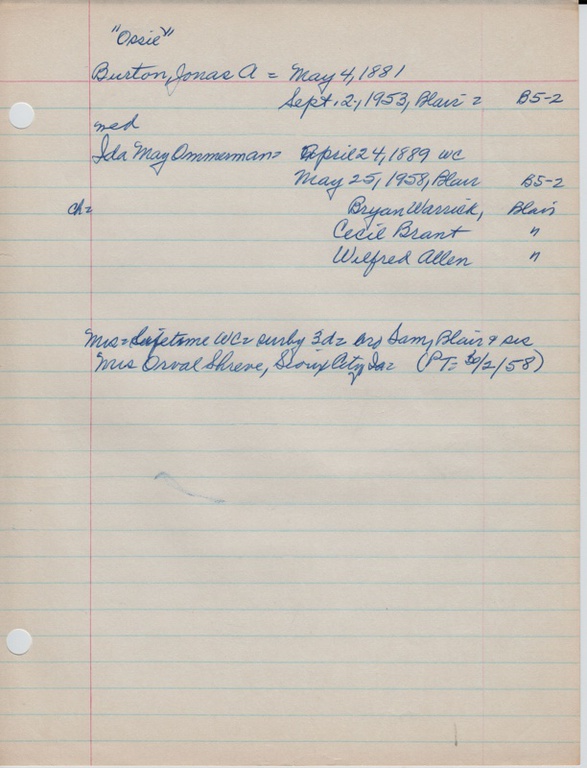 "Ossie"
Burton, Jonas A = May 4, 1881
Sept. 2, 1953, Blair = B5-2
med
Ida May Ommerman = April 24, 1889 WC
May 25, 1958, Blair B5-2
ch= Bryan Warrick, Blair
Cecil Brant "
Wilfred Allen "
Mrs = Lifetime WC = surby 3d = bro Sam, Blair & sis
Mrs Orval Shreve, Sioux City, Ia = (PT= /2/58)